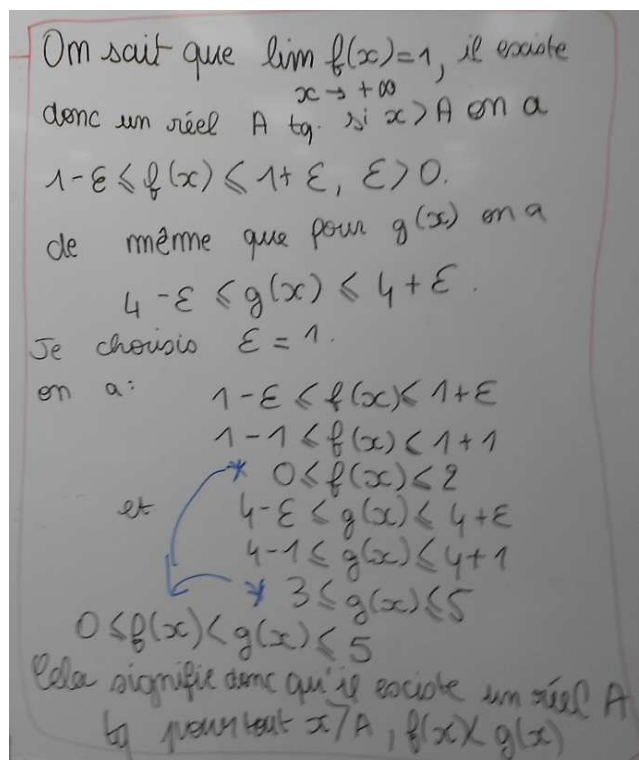 On sait que lim f(x)=1, il existe
x→+∞
donc un réel A tq. si x>A on a
1-ε ⩽ f(x) ⩽ 1+ε, ε>0.
de même que pour g(x) on a
4-ε ⩽ g(x) ⩽ 4+ε.
Je choisis ε=1.
on a: 1-ε ⩽ f(x) ⩽ 1+ε
1-1 ⩽ f(x) ⩽ 1+1
* 0 ⩽ f(x) ⩽ 2
et 4-ε ⩽ g(x) ⩽ 4+ε
4-1 ⩽ g(x) ⩽ 4+1
* 3 ⩽ g(x) ⩽ 5
0 ⩽ f(x) < g(x) ⩽ 5
Cela signifie donc qu'il existe un réel A
tq pour tout x>A, f(x)<g(x)